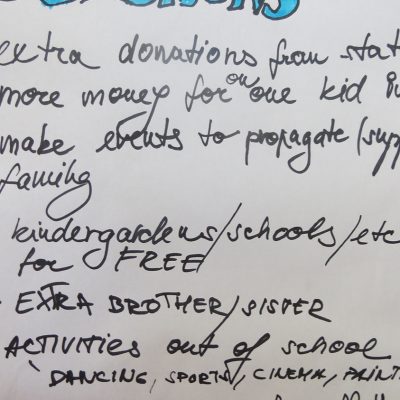 extra donations from stat
more money for on one kid i
make events to propagate/supp
faming
kindergardens/schools/etc
for FREE
- EXTRA BROTHER/SISTER
ACTIVITIES out of school
DANCING, SPORTS, CINEMA, PAINT